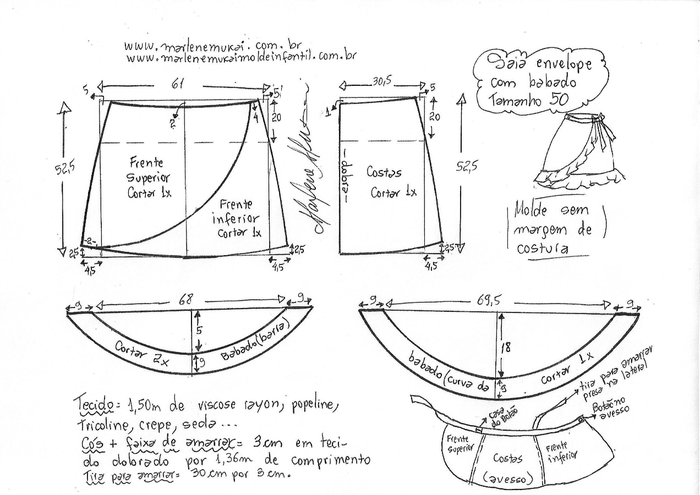 www.marlenemukai.com.br
www.marlenemukaimoldeinfantil.com.br
Saia envelope
com babado
Tamanho 50
5
61
5
20
4
2
52,5
Frente
Superior
Cortar 1x
Frente
inferior
Cortar 1x
2
2,5
4,5
4,5
2,5
Marlene Mukai
30,5
5
1
20
52,5
dobra
Costas
Cortar 1x
2,5
4,5
Molde sem
margem de
costura
9
68
9
5
9
Cortar 2x
Babado (barra)
9
69,5
9
18
9
babado (curva da
Cortar 1x
Tecido = 1,50m de viscose rayon, popeline,
Tricoline, crepe, seda ...
Cós + faixa de amarrar = 3 cm em teci-
do dobrado por 1,36m de comprimento
Tira para amarrar = 30 cm por 3 cm.
casa
do botão
tira para amarrar
presa na lateral
Botão no
avesso
Frente
Superior
Costas
(avesso)
Frente
inferior